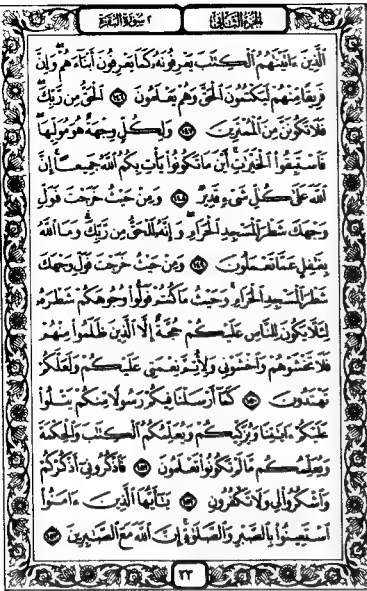 الجزء الثاني
٢ سورة البقرة
الَّذِينَ ءَاتَيْنَٰهُمُ الْكِتَٰبَ يَعْرِفُونَهُۥ كَمَا يَعْرِفُونَ أَبْنَآءَهُمْ ۖ وَإِنَّ
فَرِيقًا مِّنْهُمْ لَيَكْتُمُونَ الْحَقَّ وَهُمْ يَعْلَمُونَ ﴿١٤٦﴾ الْحَقُّ مِن رَّبِّكَ ۖ
فَلَا تَكُونَنَّ مِنَ الْمُمْتَرِينَ ﴿١٤٧﴾ وَلِكُلٍّ وِجْهَةٌ هُوَ مُوَلِّيهَا ۖ
فَاسْتَبِقُوا۟ الْخَيْرَٰتِ ۚ أَيْنَ مَا تَكُونُوا۟ يَأْتِ بِكُمُ اللَّهُ جَمِيعًا ۚ إِنَّ
اللَّهَ عَلَىٰ كُلِّ شَىْءٍ قَدِيرٌ ﴿١٤٨﴾ وَمِنْ حَيْثُ خَرَجْتَ فَوَلِّ
وَجْهَكَ شَطْرَ الْمَسْجِدِ الْحَرَامِ ۖ وَإِنَّهُۥ لَلْحَقُّ مِن رَّبِّكَ ۗ وَمَا اللَّهُ
بِغَٰفِلٍ عَمَّا تَعْمَلُونَ ﴿١٤٩﴾ وَمِنْ حَيْثُ خَرَجْتَ فَوَلِّ وَجْهَكَ
شَطْرَ الْمَسْجِدِ الْحَرَامِ ۚ وَحَيْثُ مَا كُنتُمْ فَوَلُّوا۟ وُجُوهَكُمْ شَطْرَهُۥ
لِئَلَّا يَكُونَ لِلنَّاسِ عَلَيْكُمْ حُجَّةٌ إِلَّا الَّذِينَ ظَلَمُوا۟ مِنْهُمْ
فَلَا تَخْشَوْهُمْ وَاخْشَوْنِى وَلِأُتِمَّ نِعْمَتِى عَلَيْكُمْ وَلَعَلَّكُمْ
تَهْتَدُونَ ﴿١٥٠﴾ كَمَآ أَرْسَلْنَا فِيكُمْ رَسُولًا مِّنكُمْ يَتْلُوا۟
عَلَيْكُمْ ءَايَٰتِنَا وَيُزَكِّيكُمْ وَيُعَلِّمُكُمُ الْكِتَٰبَ وَالْحِكْمَةَ
وَيُعَلِّمُكُم مَّا لَمْ تَكُونُوا۟ تَعْلَمُونَ ﴿١٥١﴾ فَاذْكُرُونِىٓ أَذْكُرْكُمْ
وَاشْكُرُوا۟ لِى وَلَا تَكْفُرُونِ ﴿١٥٢﴾ يَٰٓأَيُّهَا الَّذِينَ ءَامَنُوا۟
اسْتَعِينُوا۟ بِالصَّبْرِ وَالصَّلَوٰةِ ۚ إِنَّ اللَّهَ مَعَ الصَّٰبِرِينَ ﴿١٥٣﴾
٢٣